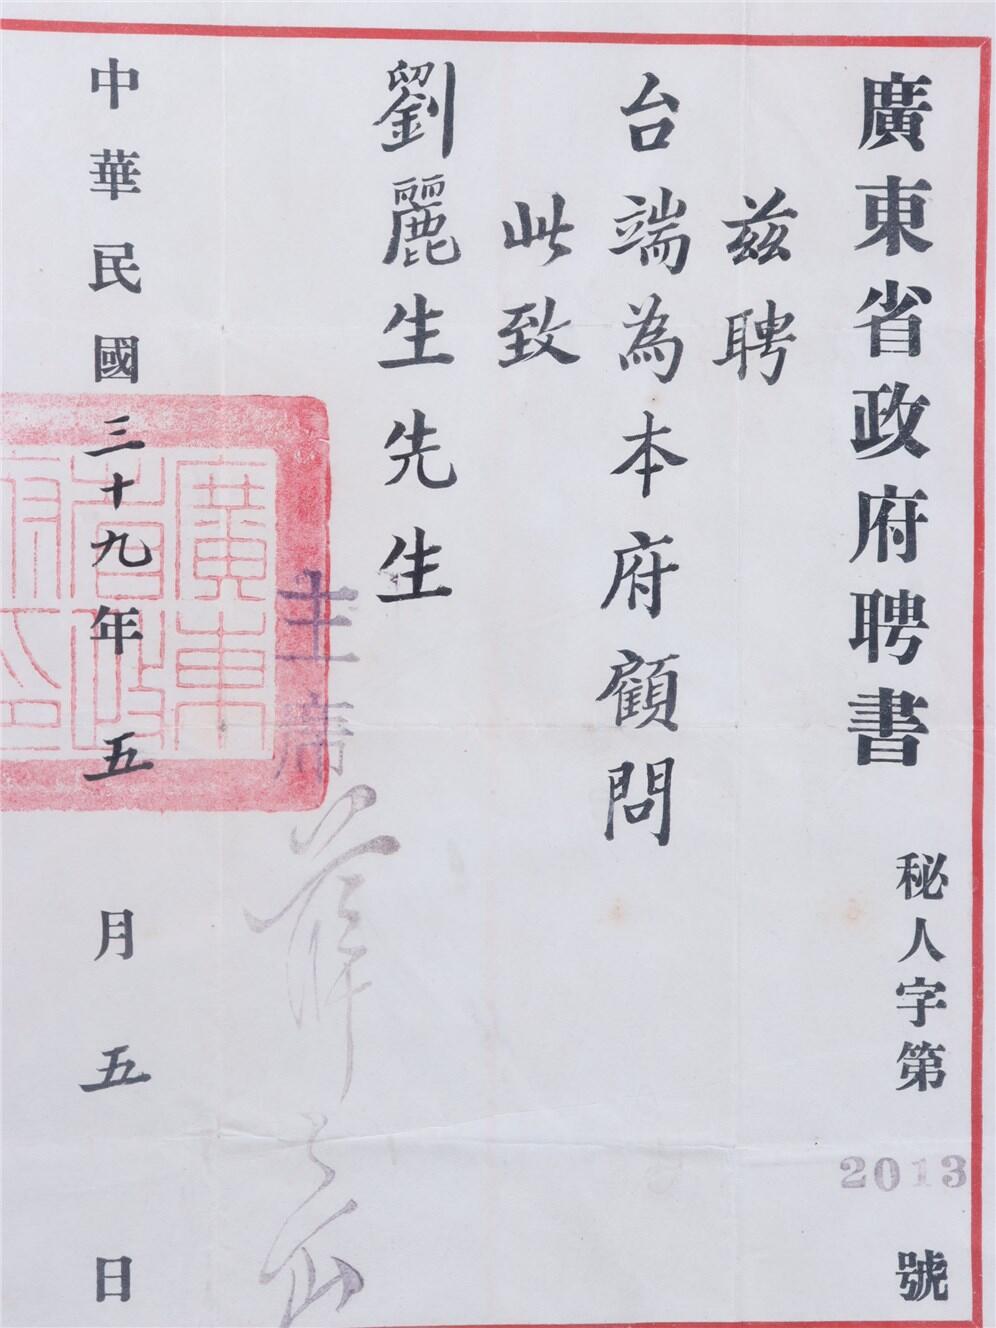 廣東省政府聘書
秘人字第2013號
茲聘
台端為本府顧問
此致
劉麗生先生
主席
薛岳
中華民國三十九年五月五日
廣東省政府印